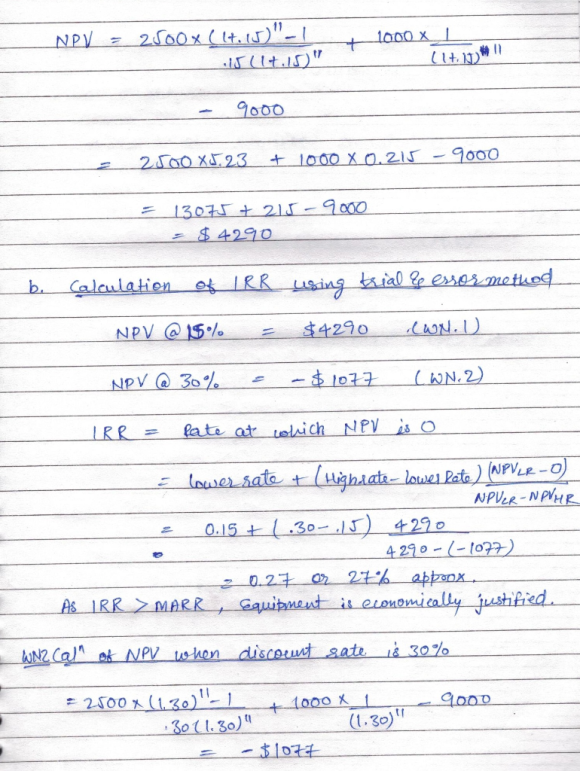 NPV = 2500 × (1+.15)^11 - 1 / .15(1+.15)^11 + 1000 × 1 / (1+.15)^11
- 9000
= 2500 × 5.23 + 1000 × 0.215 - 9000
= 13075 + 215 - 9000
= $ 4290
b. Calculation of IRR using trial & error method
NPV @ 15% = $4290 (WN.1)
NPV @ 30% = - $ 1077 (WN.2)
IRR = Rate at which NPV is 0
= lower rate + (High rate - lower Rate) (NPVLR - 0) / NPVLR - NPVHR
= 0.15 + (.30 - .15) 4290 / 4290 - (-1077)
= 0.27 or 27% approx.
As IRR > MARR, Equipment is economically justified.
WN2 Calⁿ of NPV when discount rate is 30%
= 2500 × (1.30)^11 - 1 / .30(1.30)^11 + 1000 × 1 / (1.30)^11 - 9000
= - $1077